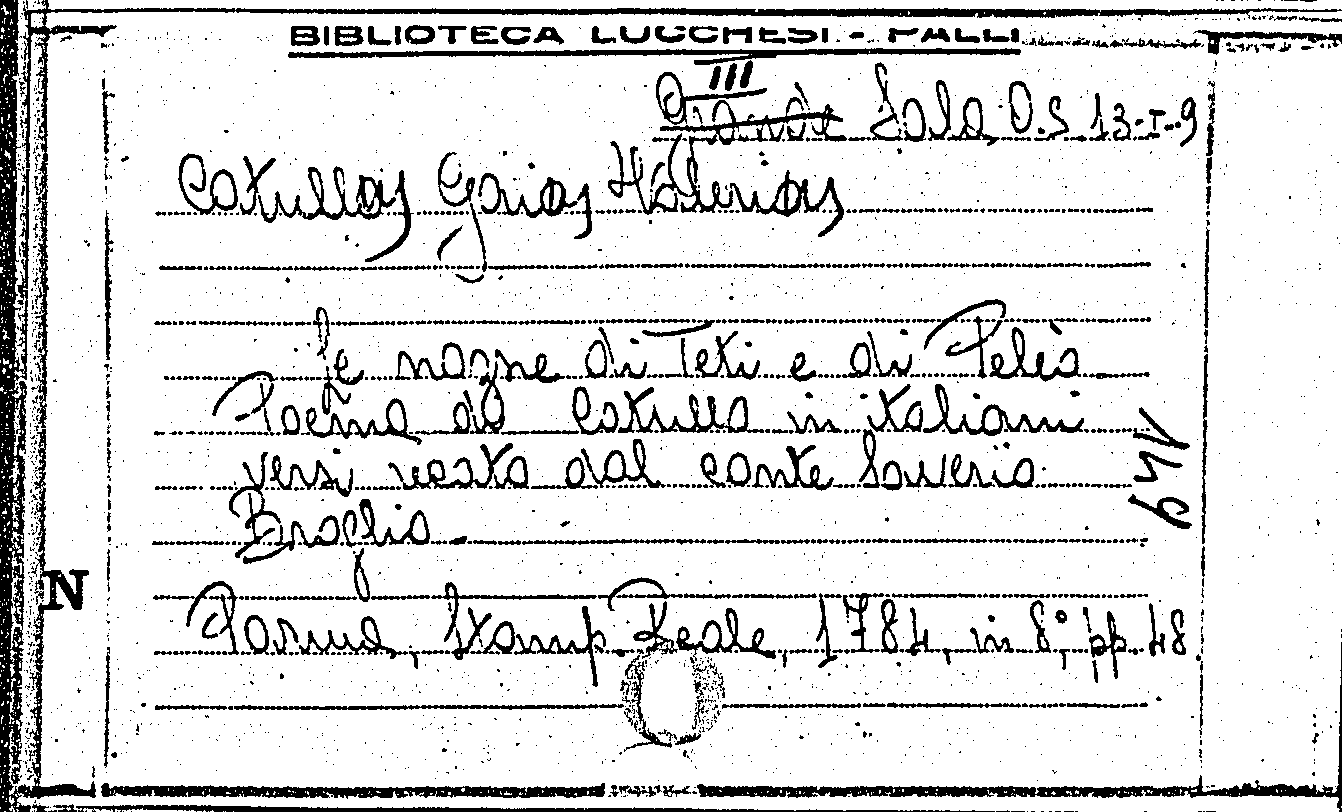 BIBLIOTECA LUCCHESI - PALLI
III
Grande Sala O.S 13-I-9
Catullus Gaius Valerius
Le nozze di Teti e di Peleo
Poema di Catullo in italiani
versi recato dal conte Saverio
Broglio.
N
Parma, Stamp. Reale, 1784, in 8°, pp. 48